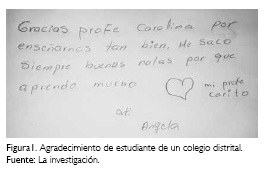 Gracias profe Carolina por
enseñarnos tan bien. He saco
siempre buenas notas por que
aprendo mucho
mi profe
carito
att.
Angela
Figura1. Agradecimiento de estudiante de un colegio distrital.
Fuente: La investigación.